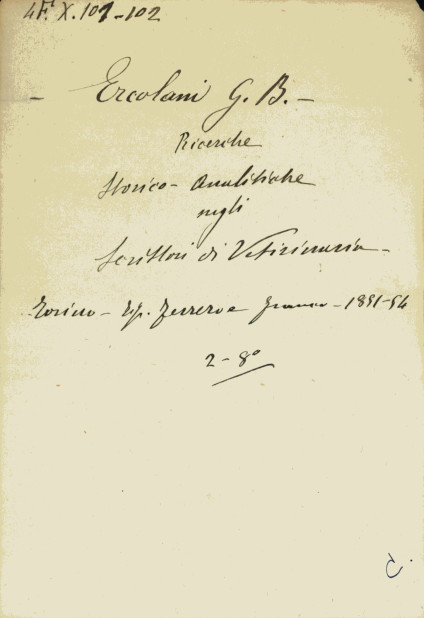 4F. X. 101-102
- Ercolani G. B. -
Ricerche
Storico - Analitiche
negli
Scrittori di Veterinaria -
Torino - Tip. Ferrero e Franco - 1851-54
2 - 8º
C.